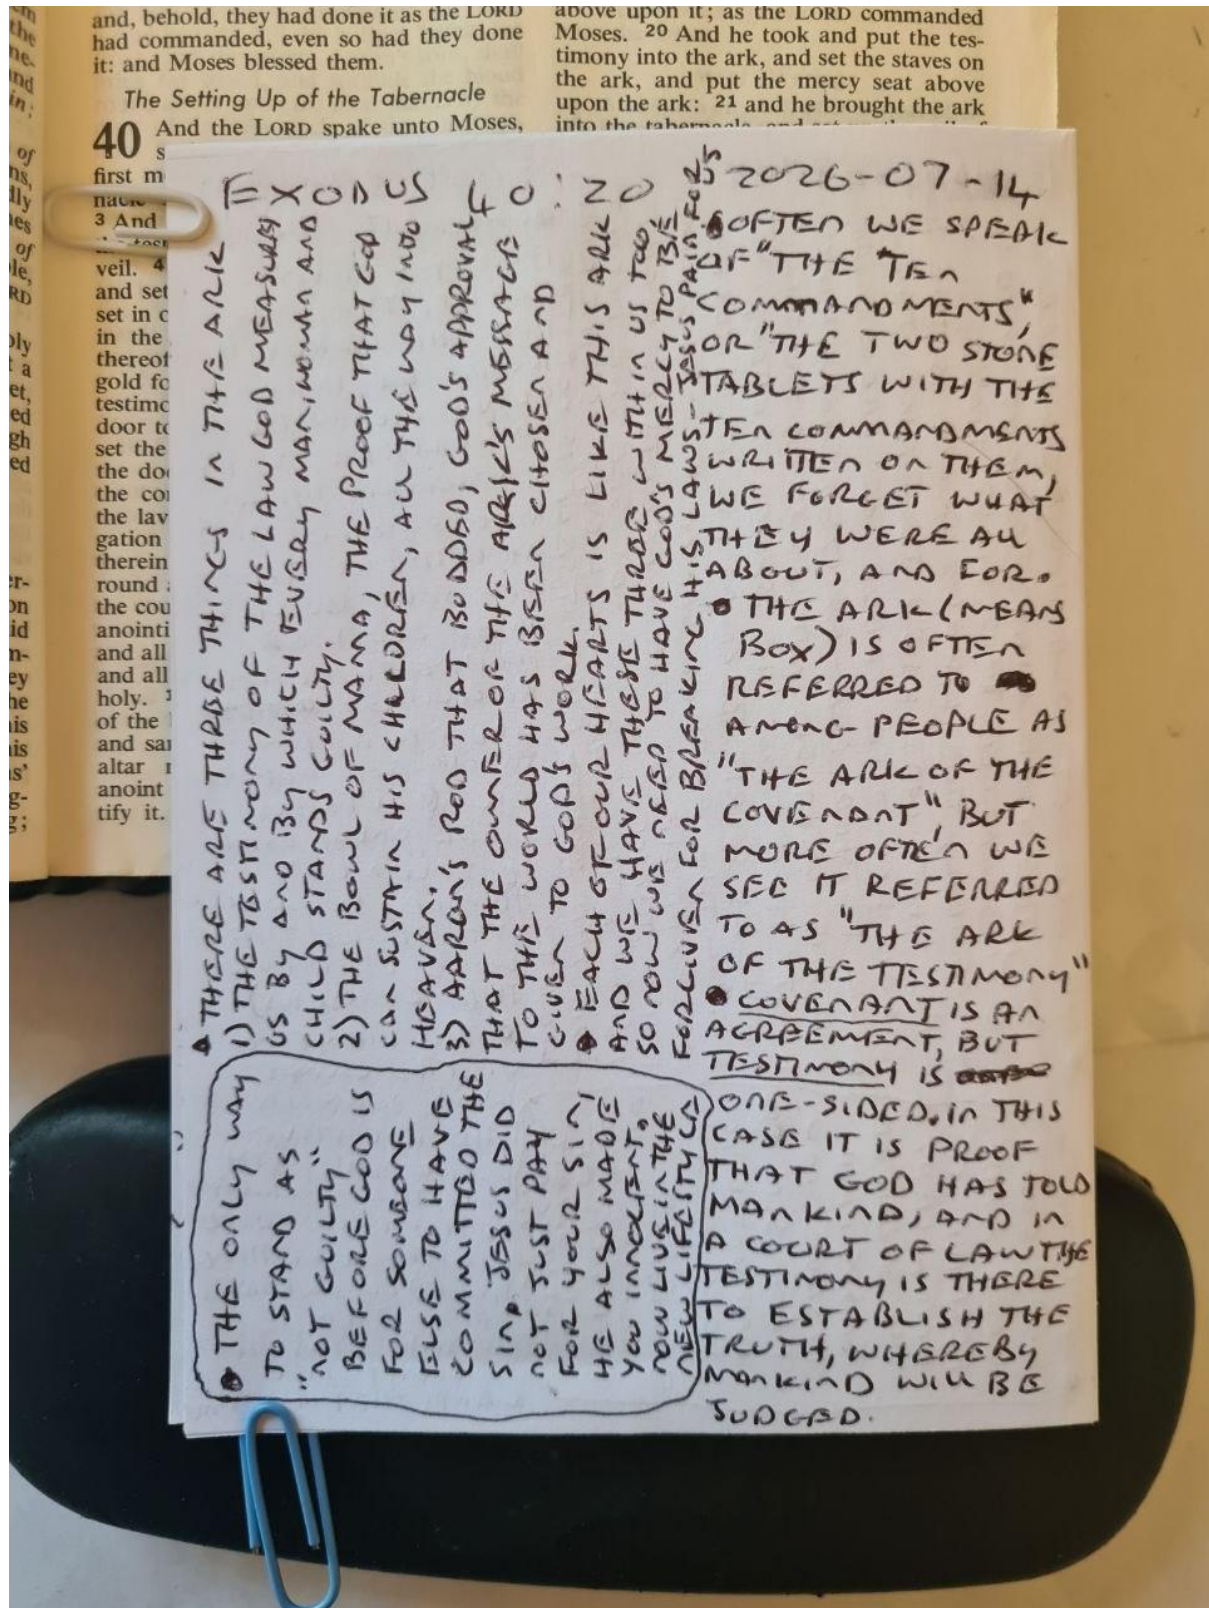 and, behold, they had done it as the LORD
had commanded, even so had they done
it: and Moses blessed them.
The Setting Up of the Tabernacle
40 And the LORD spake unto Moses,
first m
3 And
veil. 4
and set
set in c
in the
thereof
gold fo
testimo
door to
set the
the doo
the cou
the lav
gation
therein
round
the cou
anointi
and all
and all
holy.
of the
and sai
altar
anoint
tify it.
above upon it; as the LORD commanded
Moses. 20 And he took and put the tes-
timony into the ark, and set the staves on
the ark, and put the mercy seat above
upon the ark: 21 and he brought the ark
into the tabernacle, and
EXODUS 40:20
2026-07-14
OFTEN WE SPEAK
OF "THE TEN
COMMANDMENTS",
OR "THE TWO STONE
TABLETS WITH THE
TEN COMMANDMENTS
WRITTEN ON THEM,
WE FORGET WHAT
THEY WERE ALL
ABOUT, AND FOR.
• THE ARK (MEANS
BOX) IS OFTEN
REFERRED TO
AMONG PEOPLE AS
"THE ARK OF THE
COVENANT", BUT
MORE OFTEN WE
SEE IT REFERRED
TO AS "THE ARK
OF THE TESTIMONY"
• COVENANT IS AN
AGREEMENT, BUT
TESTIMONY IS
ONE-SIDED. IN THIS
CASE IT IS PROOF
THAT GOD HAS TOLD
MANKIND, AND IN
A COURT OF LAW THE
TESTIMONY IS THERE
TO ESTABLISH THE
TRUTH, WHEREBY
MANKIND WILL BE
JUDGED.
• THERE ARE THREE THINGS IN THE ARK
1) THE TESTIMONY OF THE LAW GOD MEASURES
US BY AND BY WHICH EVERY MAN, WOMAN AND
CHILD STANDS GUILTY.
2) THE BOWL OF MANA, THE PROOF THAT GOD
CAN SUSTAIN HIS CHILDREN, ALL THE WAY INTO
HEAVEN.
3) AARON'S ROD THAT BUDDED, GOD'S APPROVAL
THAT THE OWNER OR THE ARK'S MESSAGE
TO THE WORLD HAS BEEN CHOSEN AND
GIVEN TO GOD'S WORK.
• EACH OF OUR HEARTS IS LIKE THIS ARK
AND WE HAVE THESE THREE WITHIN US TOO
SO NOW WE NEED TO HAVE GOD'S MERCY TO BE
FORGIVEN FOR BREAKING HIS LAWS - JESUS PAID FOR US
• THE ONLY WAY
TO STAND AS
"NOT GUILTY"
BEFORE GOD IS
FOR SOMEONE
ELSE TO HAVE
COMMITTED THE
SIN, JESUS DID
NOT JUST PAY
FOR YOUR SIN,
HE ALSO MADE
YOU INNOCIENT.
NOW LIVE IN THE
NEW LIFESTYLE